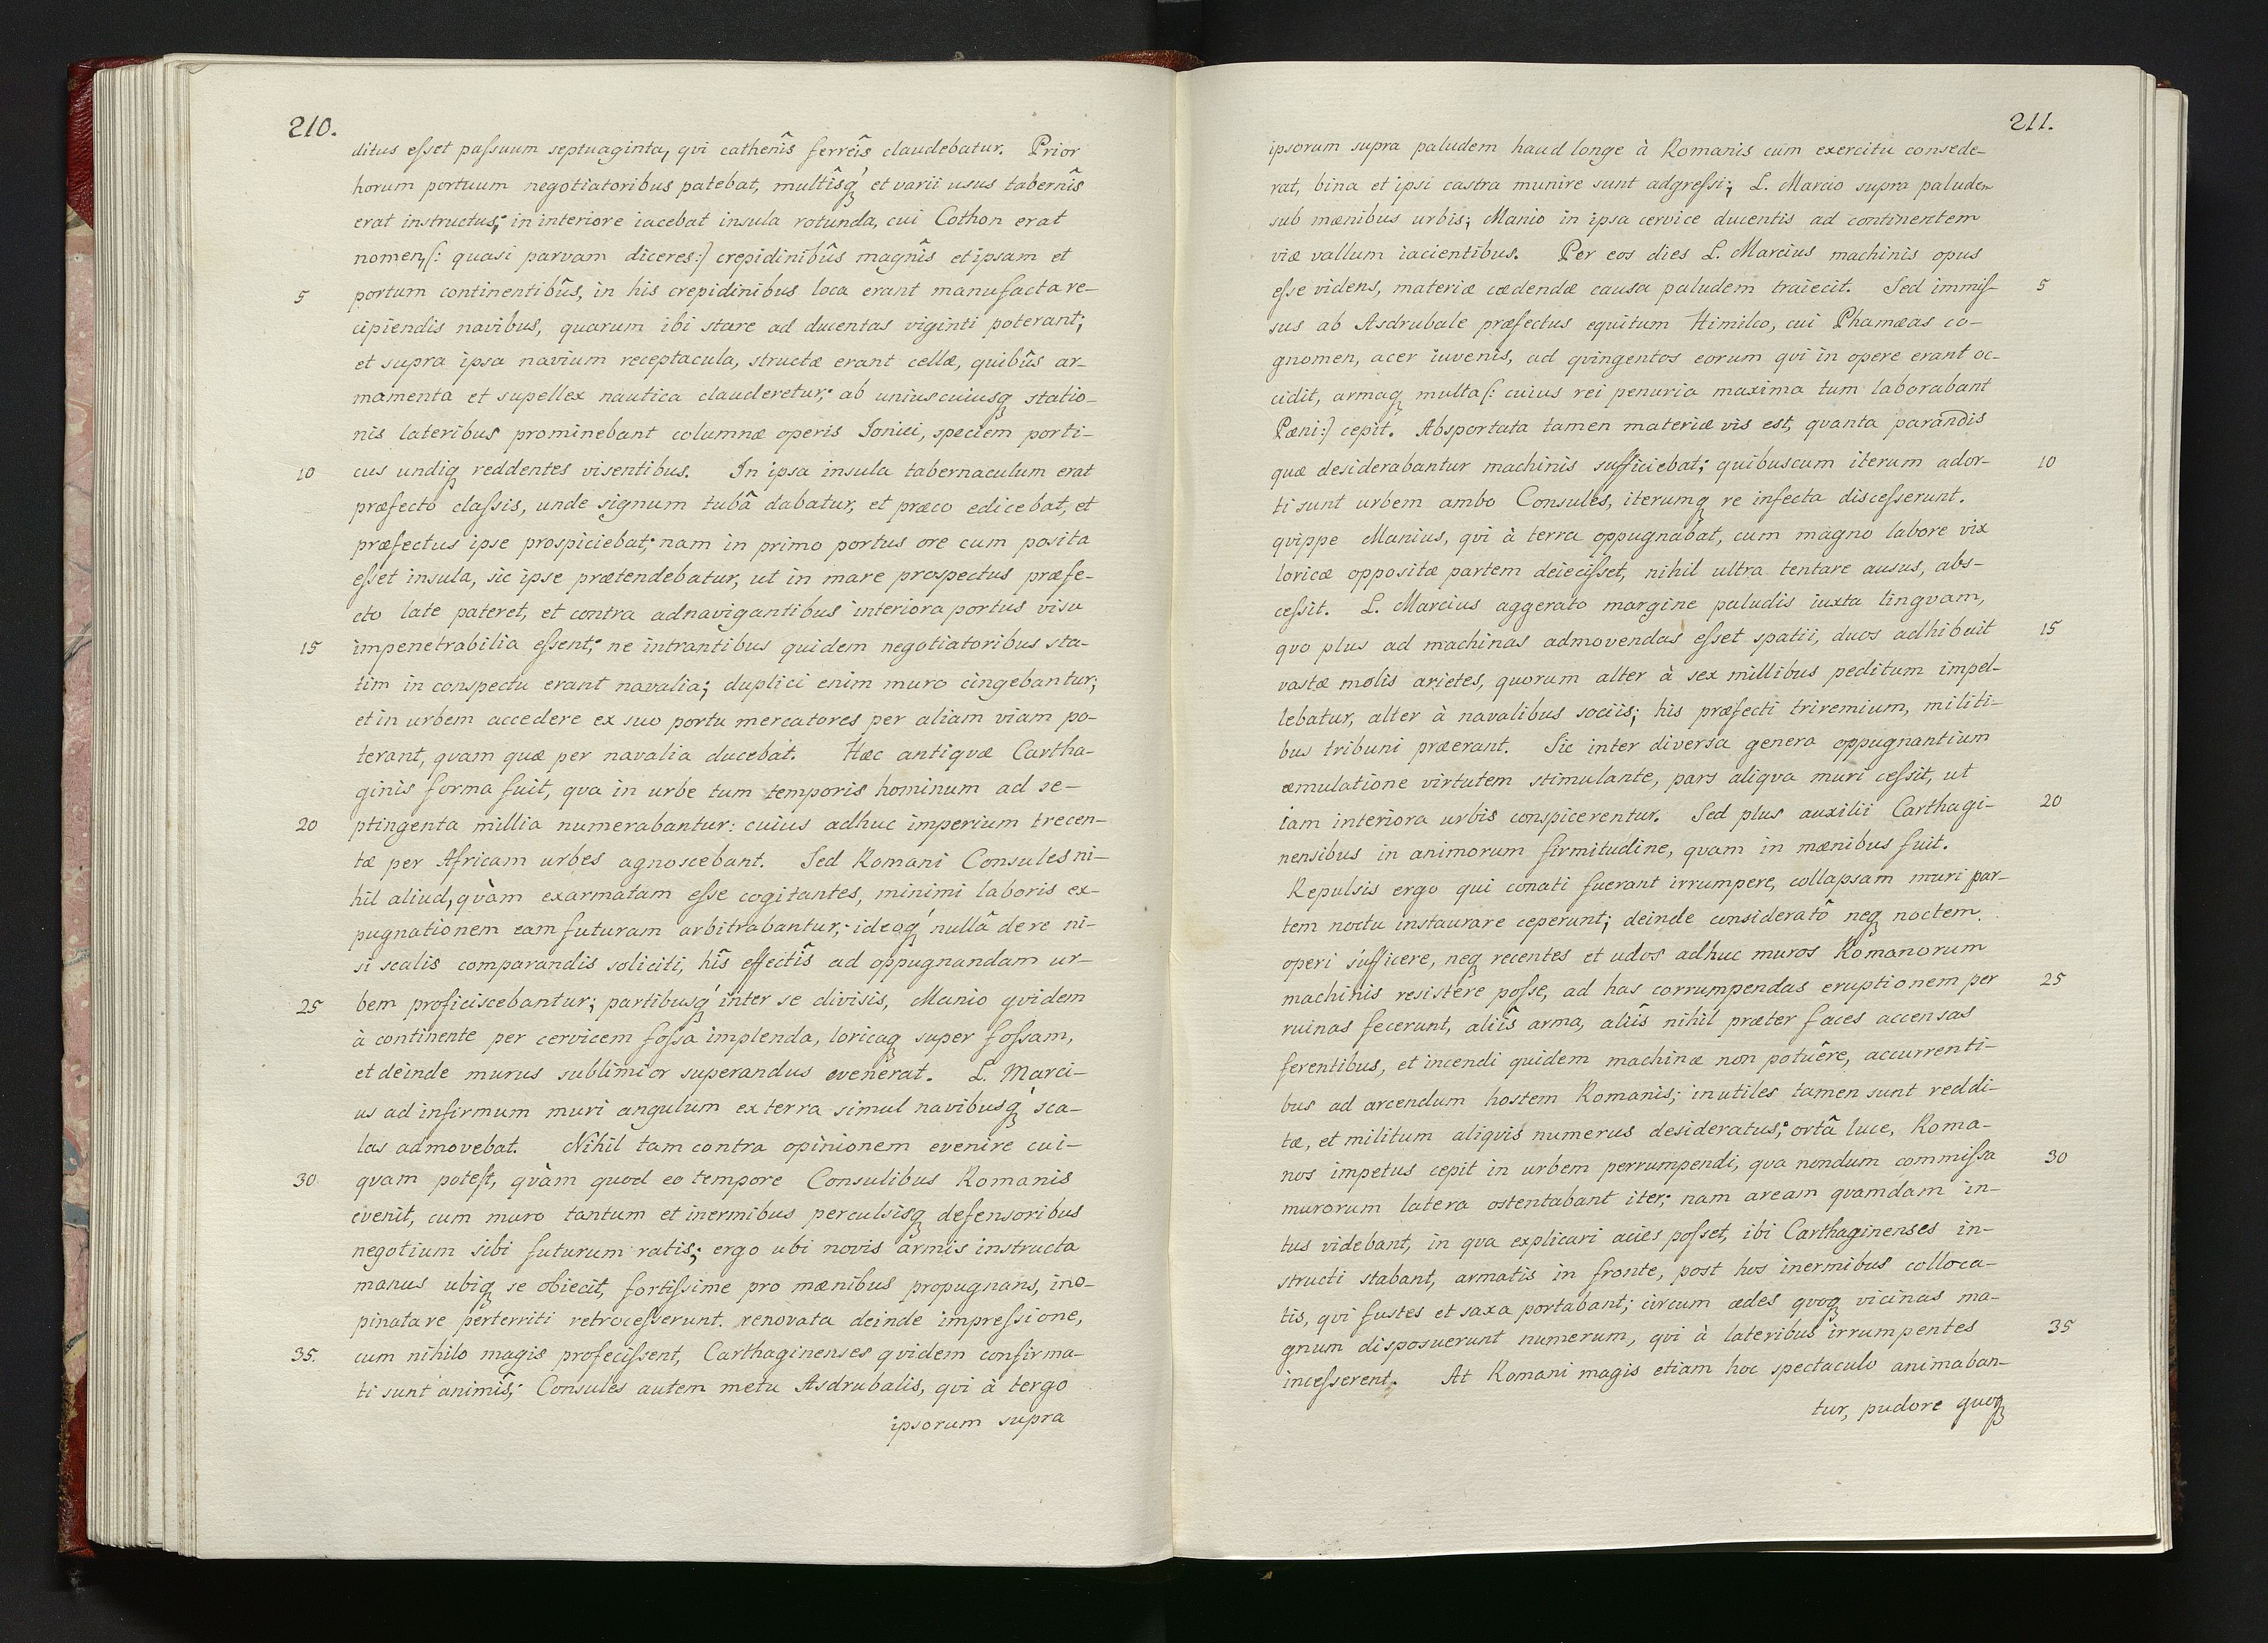 210.
ditus esset passuum septuaginta, qvi cathenîs ferreîs claudebatur. Prior
horum portuum negotiatoribus patebat, multîsq́ et varii usus tabernîs
erat instructus; in interiore iacebat insula rotunda, cui Cothon erat
nomen, (: quasi parvam diceres:) crepidinibûs magnîs et ipsam et
5 portum continentibûs, in his crepidinibus loca erant manufacta re-
cipiendis navibus, quarum ibi stare ad ducentas viginti poterant;
et supra ipsa navium receptacula, structæ erant cellæ, quibûs ar-
mamenta et supellex nautica clauderetur; ab uniuscuiusq statio-
nis lateribus prominebant columnæ operis Ionici, speciem porti-
10 cus undiq reddentes visentibus. In ipsa insula tabernaculum erat
præfecto classis, unde signum tubâ dabatur, et præco edicebat, et
præfectus ipse prospiciebat; nam in primo portus ore cum posita
esset insula, sic ipse prætendebatur, ut in mare prospectus præfe-
cto late pateret, et contra adnavigantibus interiora portus visu
15 impenetrabilia essent; ne intrantibus quidem negotiatoribus sta-
tim in conspectu erant navalia; duplici enim muro cingebantur;
et in urbem accedere ex suo portu mercatores per aliam viam po-
terant, qvam quæ per navalia ducebat. Hæc antiqvæ Cartha-
ginis forma fuit, qva in urbe tum temporis hominum ad se-
20 ptingenta millia numerabantur: cuius adhuc imperium trecen-
tæ per Africam urbes agnoscebant. Sed Romani Consules ni-
hil aliud, qvàm exarmatam esse cogitantes, minimi laboris ex-
pugnationem eam futuram arbitrabantur; ideoq́ nullâ de re ni-
si scalis comparandis soliciti, hîs effectîs ad oppugnandam ur-
25 bem proficiscebantur; partibusq́ inter se divisis, Manio qvidem
à continente per cervicem fossa implenda, loricaq super fossam,
et deinde murus sublimior superandus evenerat. L. Marci-
us ad infirmum muri angulum ex terra simul navibusq́ sca-
las admovebat. Nihil tam contra opinionem evenire cui-
30 qvam potest, qvàm quod eo tempore Consulibus Romanis
evenit, cum muro tantum et inermibus perculsisq defensoribus
negotium sibi futurum ratis; ergo ubi novis armis instructa
manus ubiq se obiecit, fortissime pro mænibus propugnans, ino-
pinata re perterriti retrocesserunt. renovata deinde impressione,
35. cum nihilo magis profecissent, Carthaginenses qvidem confirma-
ti sunt animîs; Consules autem metu Asdrubalis, qvi à tergo
ipsorum supra
211.
ipsorum supra paludem haud longe à Romanis cum exercitu consede-
rat, bina et ipsi castra munire sunt adgressi; L. Marcio supra paludem
sub mænibus urbis; Manio in ipsa cervice ducentis ad continentem
viæ vallum iacientibus. Per eos dies L. Marcius machinis opus
esse videns, materiæ cædendæ causa paludem traiecit. Sed immis- 5
sus ab Asdrubale præfectus equitum Himilco, cui Phamæas co-
gnomen, acer iuvenis, ad qvingentos eorum qvi in opere erant oc-
cidit, armaq multa (: cuius rei penuria maxima tum laborabant
Pæni:) cepit. Absportata tamen materiæ vis est, qvanta parandis
quæ desiderabantur machinis sufficiebat; quibuscum iterum ador- 10
ti sunt urbem ambo Consules, iterumq re infecta discesserunt.
qvippe Manius, qvi à terra oppugnabat, cum magno labore vix
loricæ oppositæ partem deiecisset, nihil ultra tentare ausus, abs-
cessit. L. Marcius aggerato margine paludis iuxta lingvam,
qvo plus ad machinas admovendas esset spatii, duos adhibuit 15
vastæ molis arietes, quorum alter à sex millibus peditum impel-
lebatur, alter à navalibus sociis; his præfecti triremium, militi-
bus tribuni præerant. Sic inter diversa genera oppugnantium
æmulatione virtutem stimulante, pars aliqva muri cessit, ut
iam interiora urbis conspicerentur. Sed plus auxilii Carthagi- 20
nensibus in animorum firmitudine, qvam in mænibus fuit.
Repulsis ergo qui conati fuerant irrumpere, collapsam muri par-
tem noctu instaurare ceperunt; deinde consideratô neq noctem
operi sufficere, neq recentes et udos adhuc muros Romanorum
machinis resistere posse, ad has corrumpendas eruptionem per 25
ruinas fecerunt, aliîs arma, aliîs nihil præter faces accensas
ferentibus, et incendi quidem machinæ non potuêre, accurrenti-
bus ad arcendum hostem Romanis; inutiles tamen sunt reddi-
tæ, et militum aliqvis numerus desideratus; ortâ luce, Roma-
nos impetus cepit in urbem perrumpendi, qva nondum commissa 30
murorum latera ostentabant iter; nam aream qvamdam in-
tus videbant, in qva explicari acies posset, ibi Carthaginenses in-
structi stabant, armatis in fronte, post hos inermibus colloca-
tis, qvi fustes et saxa portabant; circum ædes qvoq vicinas ma-
gnum disposuerunt numerum, qvi à lateribus irrumpentes 35
incesserent. At Romani magis etiam hoc spectaculo animaban-
tur, pudore quoq